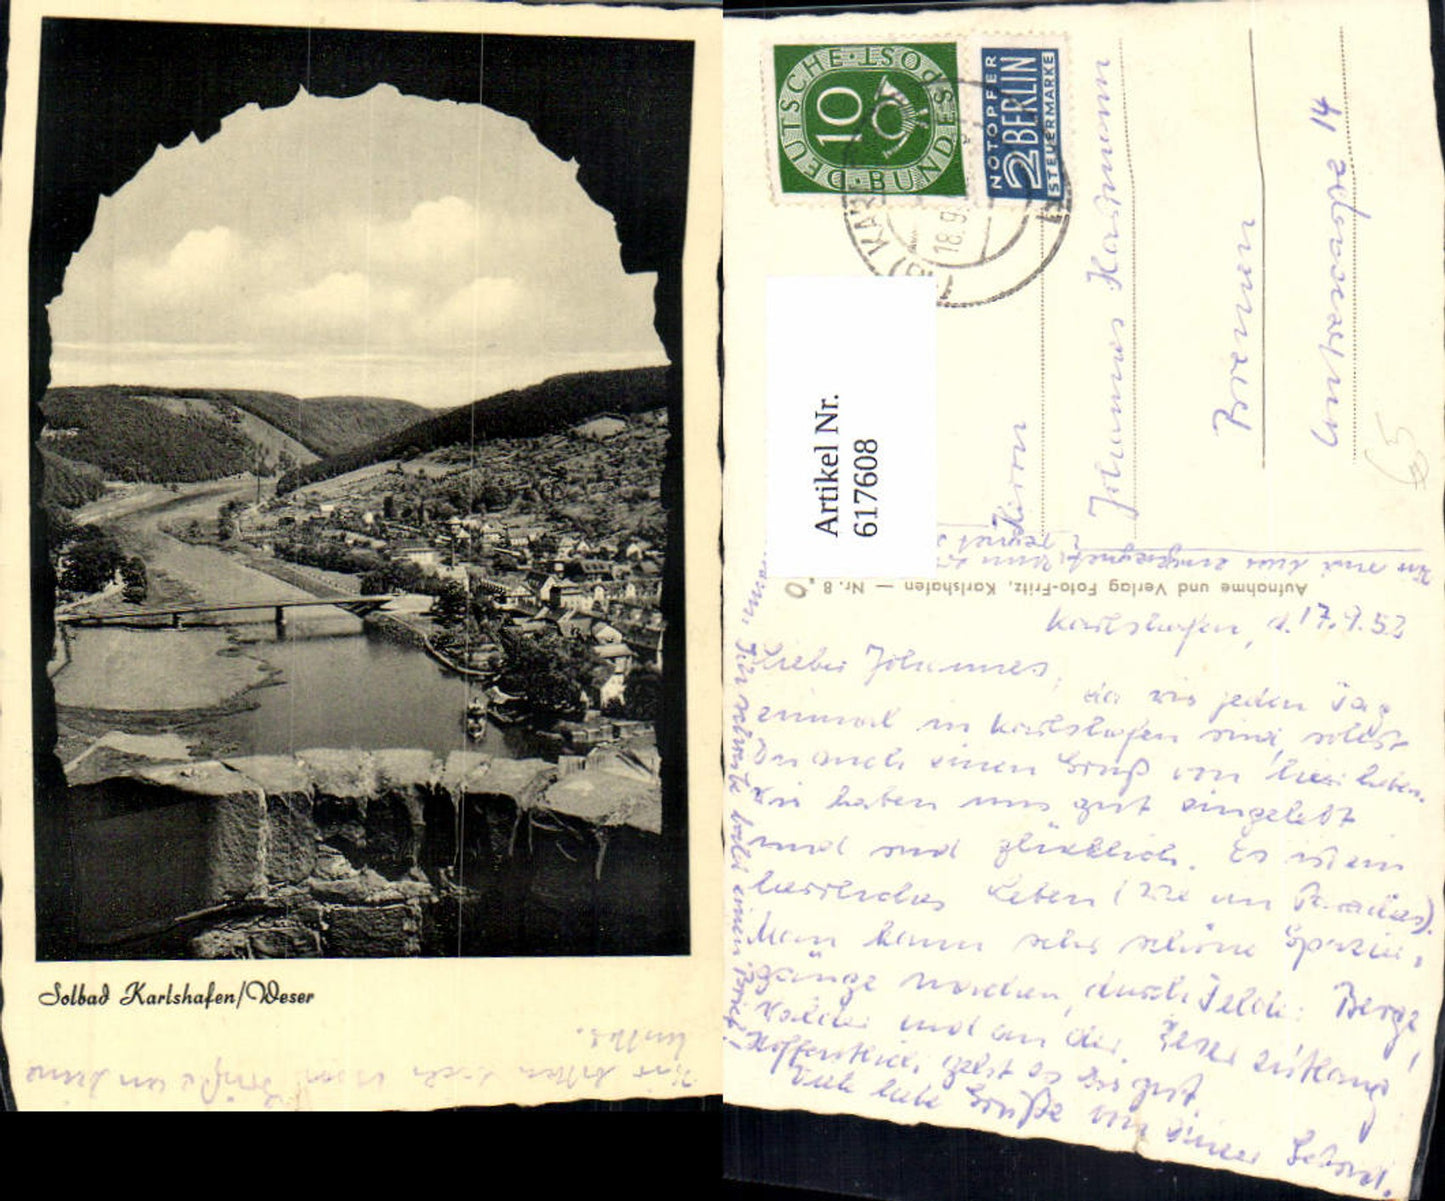 Solbad Karlshafen/Weser
Wir bitten auch um Grüße an Deine
DEUTSCHE·POST·BUNDES
10
NOTOPFER
2 BERLIN
STEUERMARKE
18.9.
Artikel Nr.
617608
Herrn
Johannes
Bremen
14
65
Aufnahme und Verlag Foto-Fritz, Karlshafen — Nr. 8
Karlshafen, d. 17.9.52
Lieber Johannes,
da wir jeden Tag
einmal in Karlshafen sind, sollst
Du auch einen Gruß von hier haben.
Wir haben uns gut eingelebt
und sind glücklich. Es ist ein
herrliches Leben (wie im Paradies).
Man kann sehr schöne Spazier-
gänge machen, durch Felder, Berge,
Wälder und an der Weser entlang!
Hoffentlich geht es Dir gut
Viele liebe Grüße von Deiner